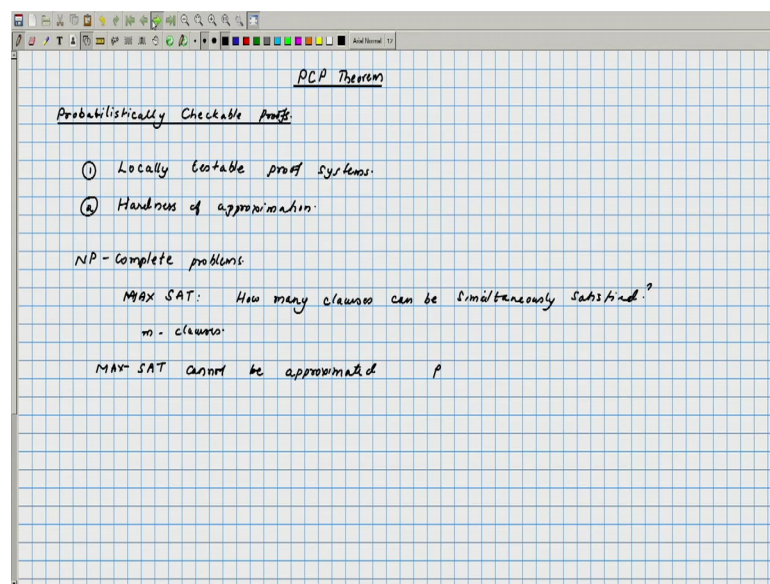 Arial Normal 12
PCP Theorem
Probabilistically Checkable Proofs.
① Locally testable proof systems.
② Hardness of approximation.
NP - Complete problems.
MAX SAT: How many clauses can be simultaneously satisfied?
m - clauses.
MAX-SAT cannot be approximated ρ